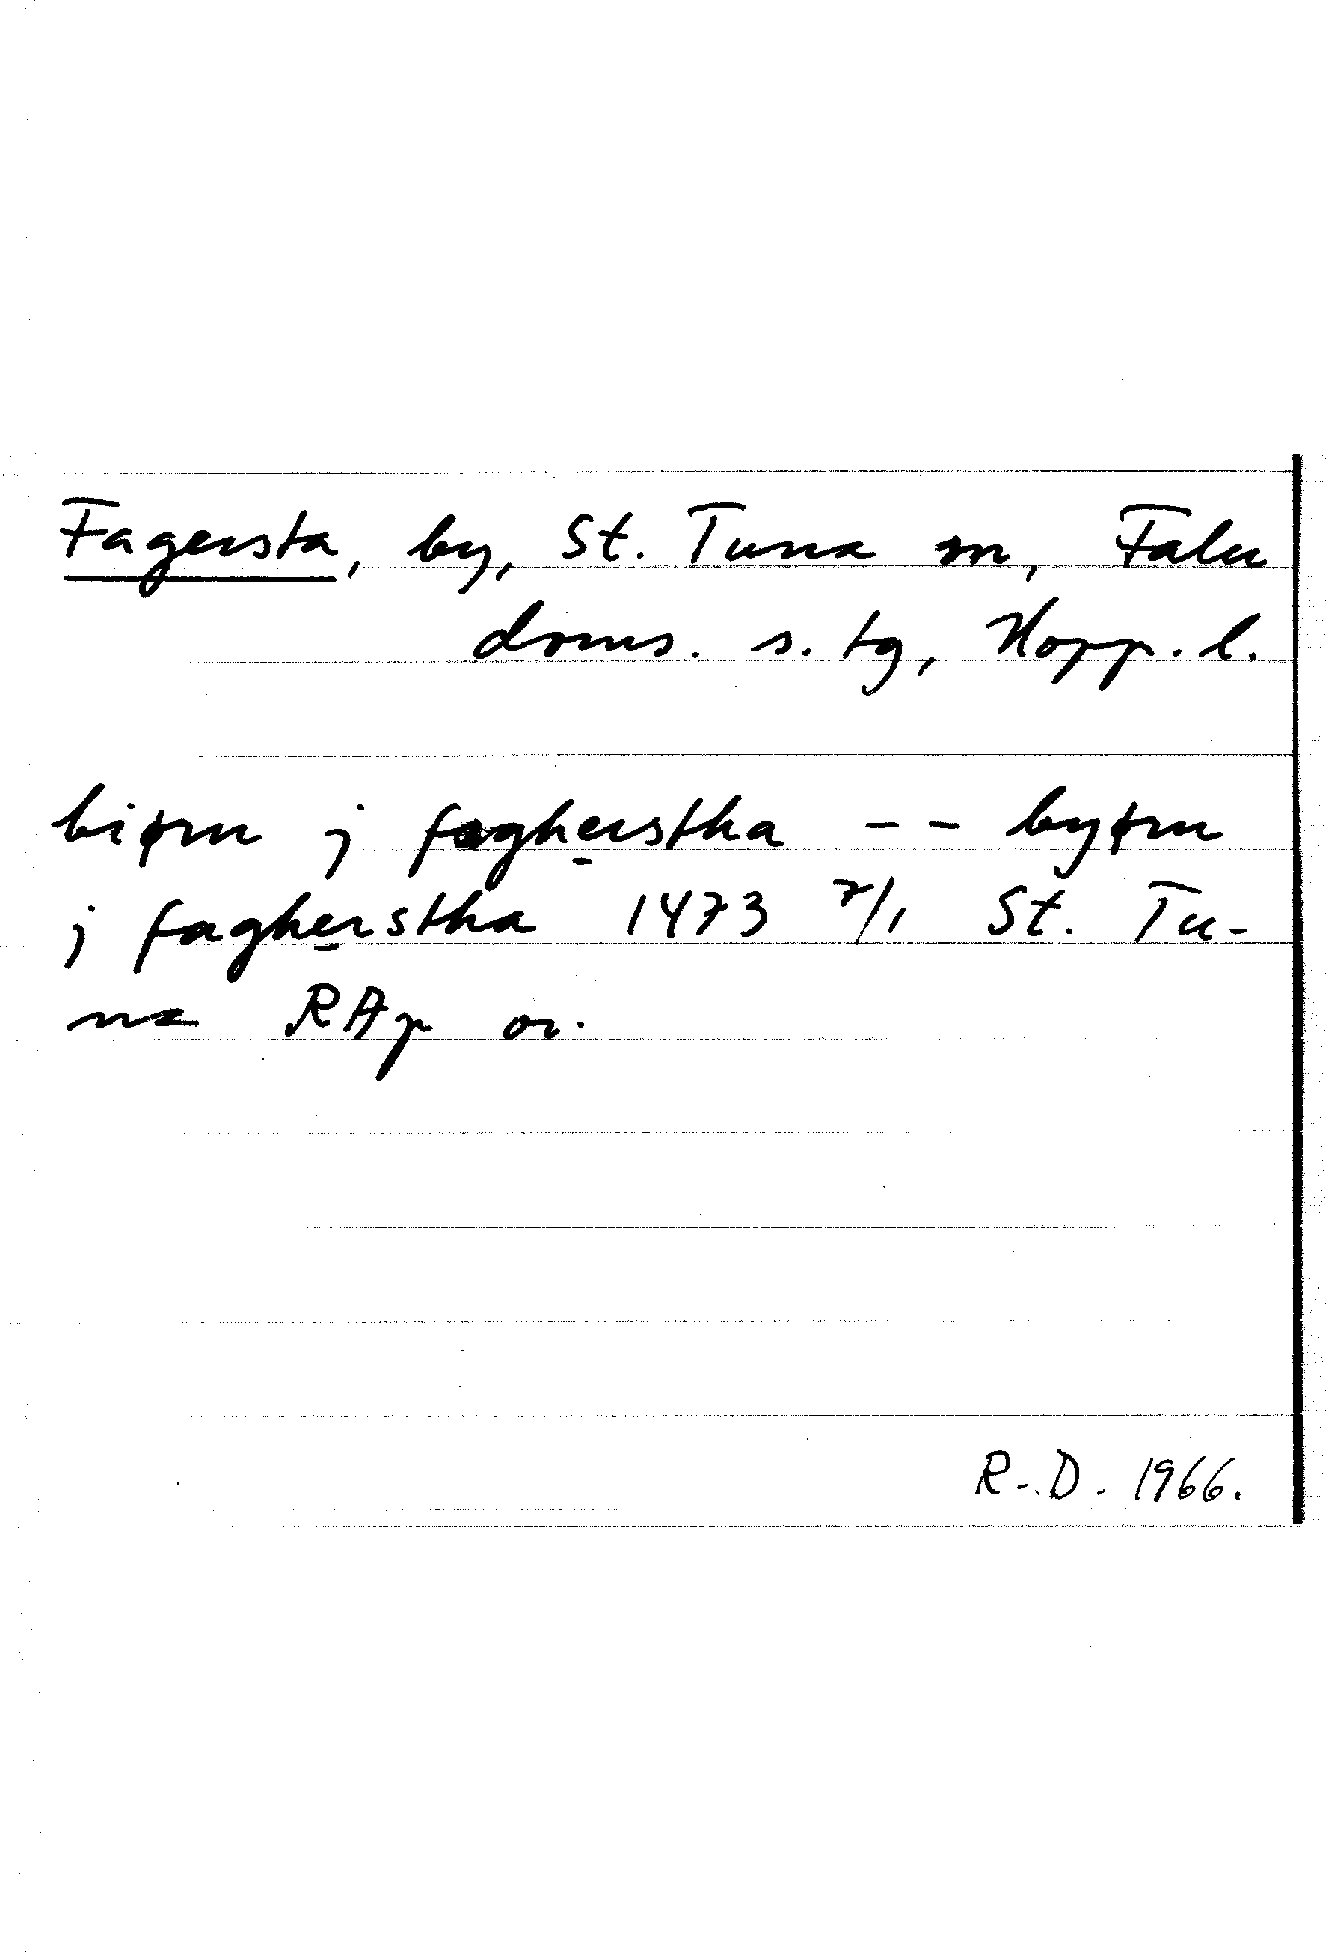 Fagersta, by, St. Tuna sn, Falu
doms. s. tg, Kopp. l.
biørn j fagherstha -- byørn
j fagherstha 1473 7/1 St. Tu-
na RAp or.
R.-D. 1966.